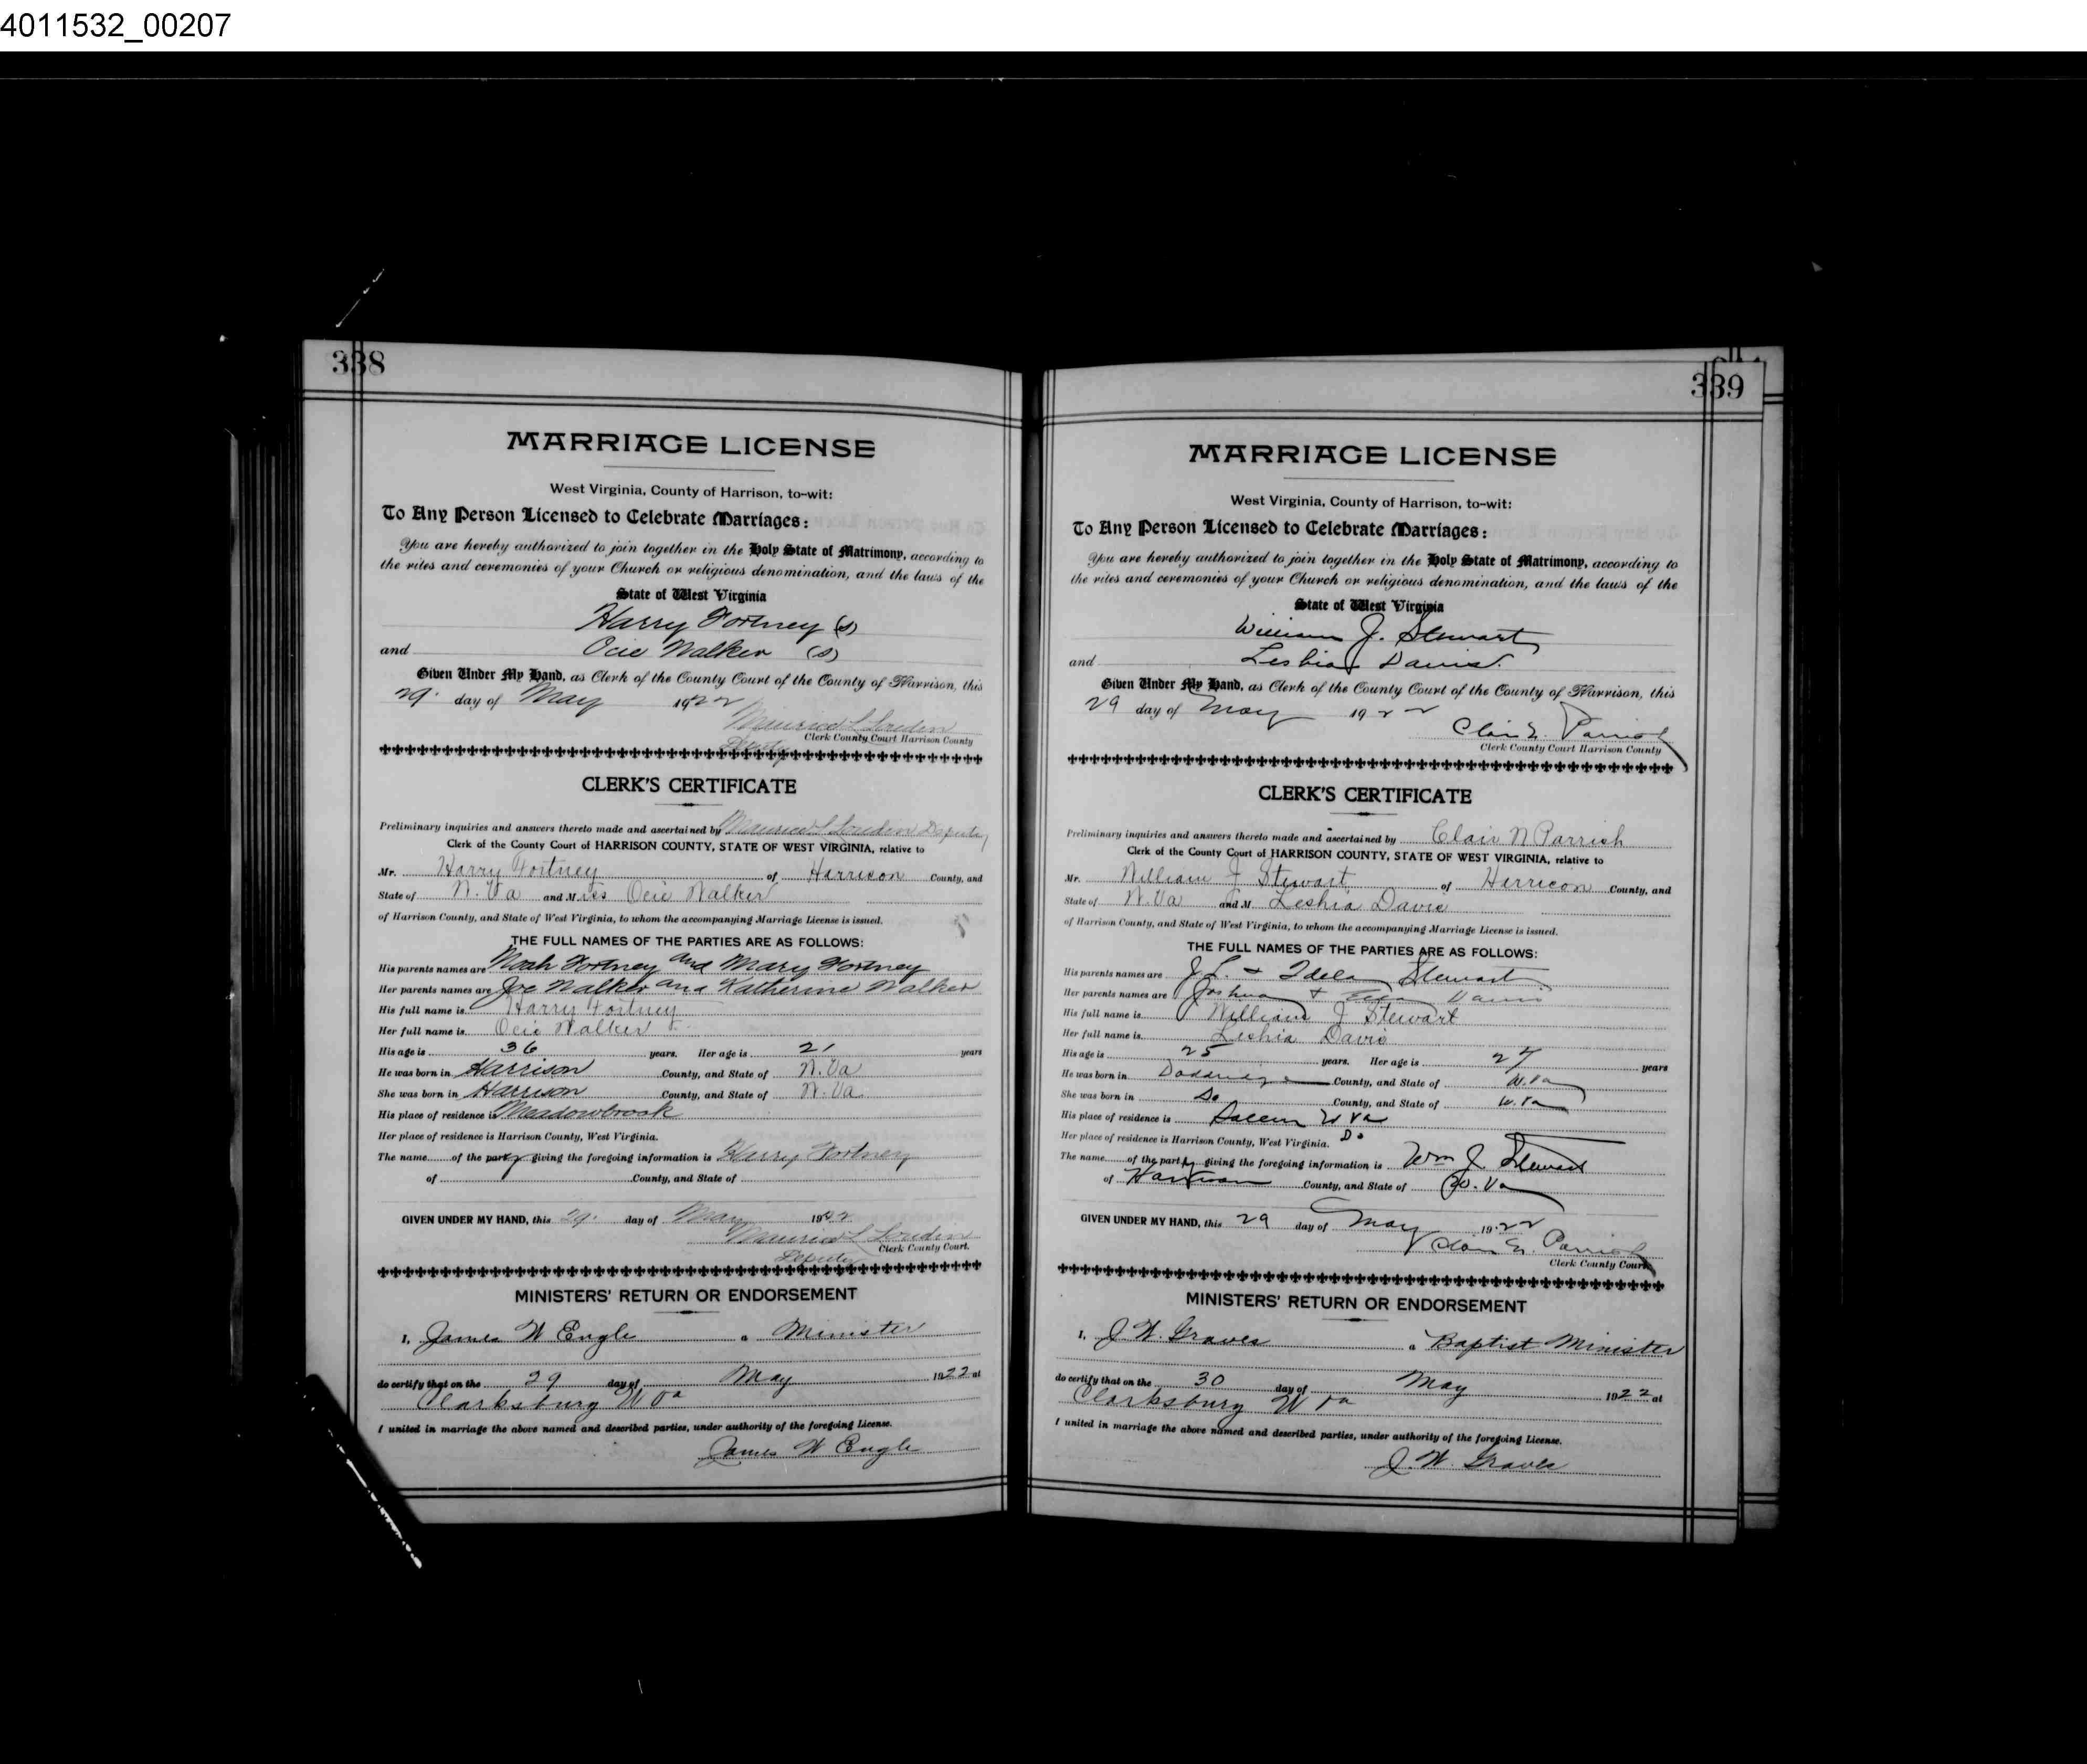 4011532_00207
338
MARRIAGE LICENSE
West Virginia, County of Harrison, to-wit:
To Any Person Licensed to Celebrate Marriages:
You are hereby authorized to join together in the Holy State of Matrimony, according to
the rites and ceremonies of your Church or religious denomination, and the laws of the
State of West Virginia
Harry Fortney (s)
and Ocie Walker (s)
Given Under My Hand, as Clerk of the County Court of the County of Harrison, this
29. day of May 1922
Maurice L Louden
Clerk County Court Harrison County
Deputy
CLERK'S CERTIFICATE
Preliminary inquiries and answers thereto made and ascertained by Maurice L Louden Deputy
Clerk of the County Court of HARRISON COUNTY, STATE OF WEST VIRGINIA, relative to
Mr. Harry Fortney of Harrison County, and
State of W. Va and Miss Ocie Walker
of Harrison County, and State of West Virginia, to whom the accompanying Marriage License is issued.
THE FULL NAMES OF THE PARTIES ARE AS FOLLOWS:
His parents names are Noah Fortney and Mary Fortney
Her parents names are Joe Walker and Katherine Walker
His full name is Harry Fortney
Her full name is Ocie Walker
His age is 36 years. Her age is 21 years
He was born in Harrison County, and State of W. Va
She was born in Harrison County, and State of W. Va
His place of residence is Meadowbrook
Her place of residence is Harrison County, West Virginia.
The name of the party giving the foregoing information is Harry Fortney
of County, and State of
GIVEN UNDER MY HAND, this 29. day of May 1922
Maurice L Louden
Clerk County Court.
Deputy
MINISTERS' RETURN OR ENDORSEMENT
I, James W Engle a Minister
do certify that on the 29 day of May 1922 at
Clarksburg W Va
I united in marriage the above named and described parties, under authority of the foregoing License.
James W Engle
339
MARRIAGE LICENSE
West Virginia, County of Harrison, to-wit:
To Any Person Licensed to Celebrate Marriages:
You are hereby authorized to join together in the Holy State of Matrimony, according to
the rites and ceremonies of your Church or religious denomination, and the laws of the
State of West Virginia
William J. Stewart
and Leshia Davis.
Given Under My Hand, as Clerk of the County Court of the County of Harrison, this
29 day of May 1922
Clair N. Parrish
Clerk County Court Harrison County
CLERK'S CERTIFICATE
Preliminary inquiries and answers thereto made and ascertained by Clair N Parrish
Clerk of the County Court of HARRISON COUNTY, STATE OF WEST VIRGINIA, relative to
Mr. William J Stewart of Harrison County, and
State of W. Va and M Leshia Davis
of Harrison County, and State of West Virginia, to whom the accompanying Marriage License is issued.
THE FULL NAMES OF THE PARTIES ARE AS FOLLOWS:
His parents names are J.L. + Idela Stewart
Her parents names are Joshua + Davis
His full name is William J Stewart
Her full name is Leshia Davis
His age is 25 years. Her age is 27 years
He was born in Doddridge County, and State of W. Va
She was born in Do County, and State of W. Va
His place of residence is Salem W Va
Her place of residence is Harrison County, West Virginia. Do
The name of the party giving the foregoing information is Wm J. Stewart
of Harrison County, and State of W. Va
GIVEN UNDER MY HAND, this 29 day of May 1922
Clair N. Parrish
Clerk County Court.
MINISTERS' RETURN OR ENDORSEMENT
I, J. W. Graves a Baptist Minister
do certify that on the 30 day of May 1922 at
Clarksburg W Va
I united in marriage the above named and described parties, under authority of the foregoing License.
J. W. Graves